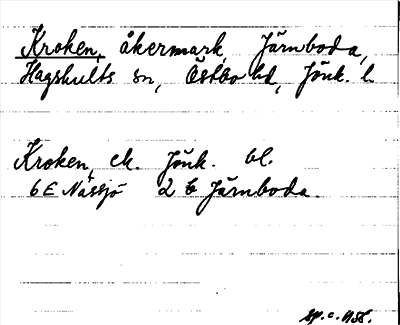 Kroken, åkermark, Järnboda,
Hagshults sn, Östbo hd, Jönk. l.
Kroken, ek. Jönk. bl.
6E Nässjö 2 b Järnboda.
sp. c. 1938.